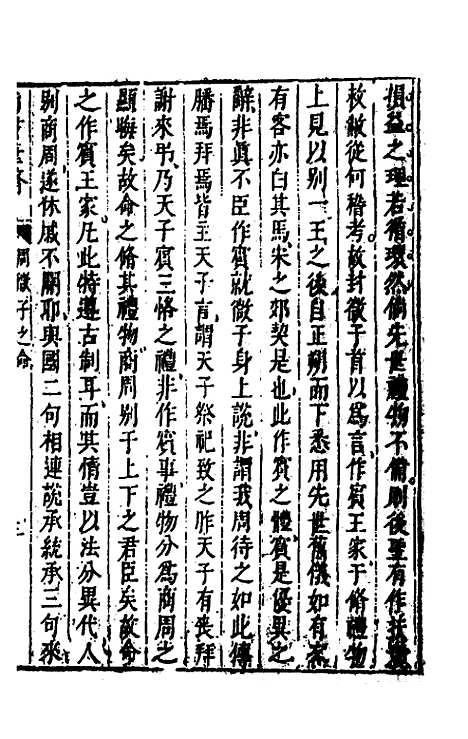 損益之理若循環然倘先世禮物不備則後聖有作
枚敝從何稽考故封微于首以為言作賓王家于脩禮物
上見以别一王之後自正朔而下悉用先世舊儀如有客
有客亦白其馬宋之郊契是也此作賓之體賓是優異之
辭非真不臣作賓就微子身上說非謂我周待之如此傳
膰焉拜焉皆主天子言謂天子祭祀致之胙天子有喪拜
謝來弔乃天子賓三恪之禮非作賓事禮物分為商周之
顯晦矣故命之脩其禮物商周别于上下之君臣矣故命
之作賓王家凡此特遵古制耳而其情豈以法分異代人
別商周遂休戚不關耶與國二句相連說承統承三句來
周微子之命